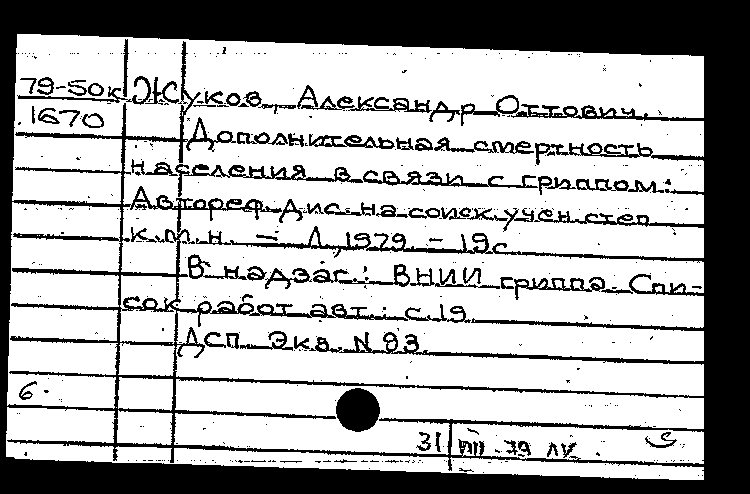 79-50к Жуков, Александр Оттович.
1670 Дополнительная смертность
населения в связи с гриппом:
Автореф. дис. на соиск. учен. степ.
к. м. н. – Л., 1979. – 19с
В надзаг.: ВНИИ гриппа. Спи-
сок работ авт.: с. 19.
ДСП. Экз. N 93.
6.
31 VIII. 79